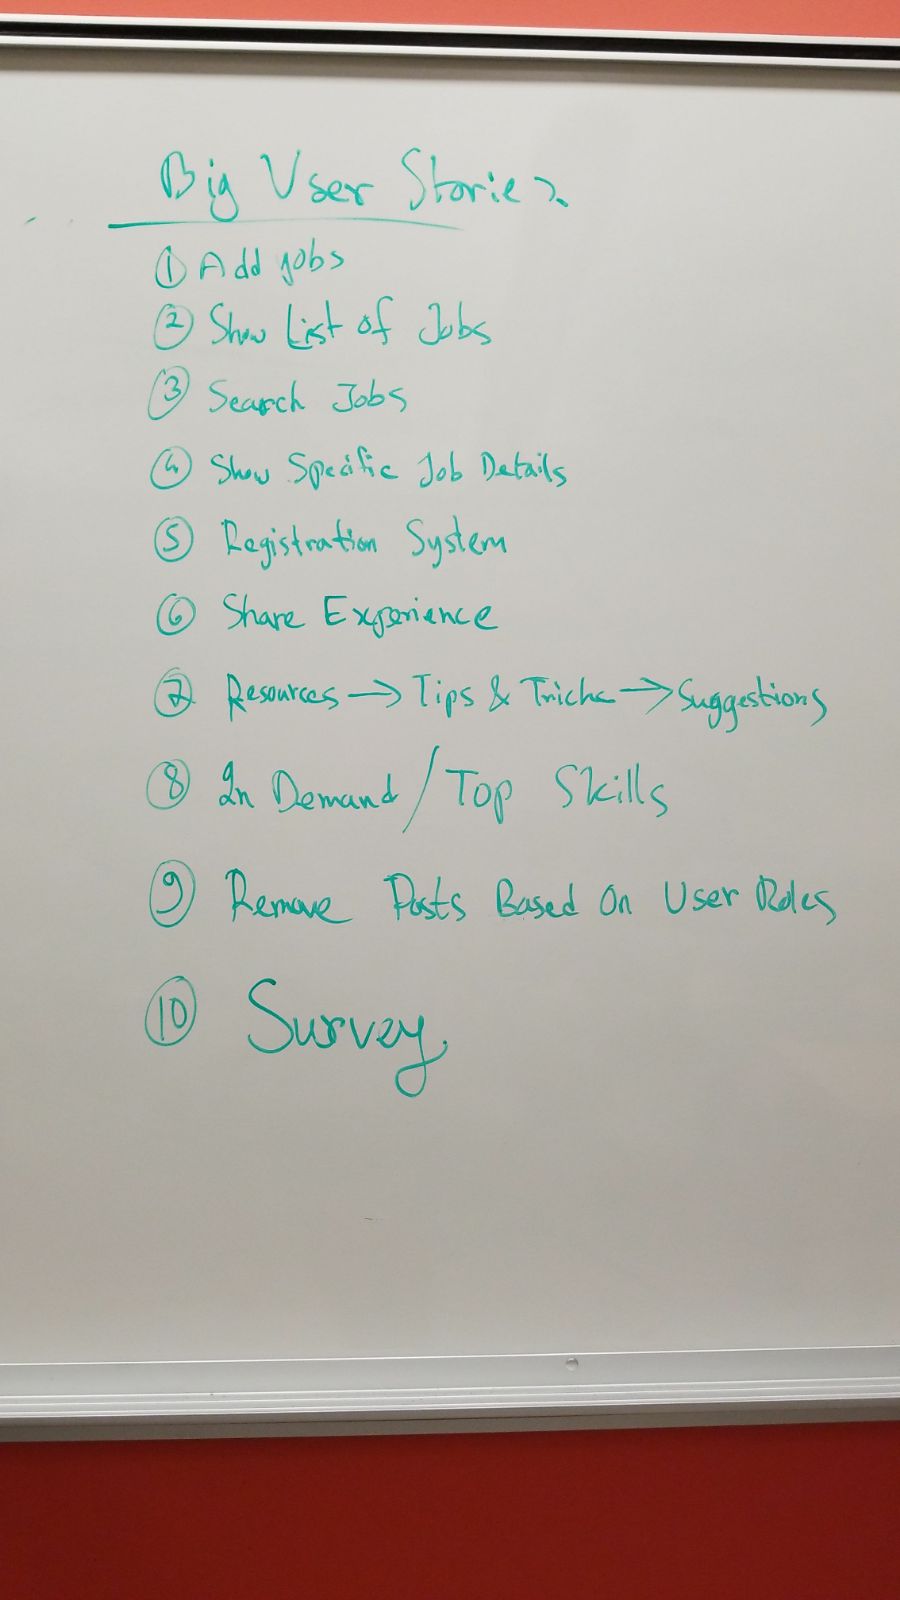 Big User Stories.
① Add jobs
② Show List of Jobs
③ Search Jobs
④ Show Specific Job Details
⑤ Registration System
⑥ Share Experience
⑦ Resources → Tips & Tricks → Suggestions
⑧ In Demand / Top Skills
⑨ Remove Posts Based On User Roles
⑩ Survey.